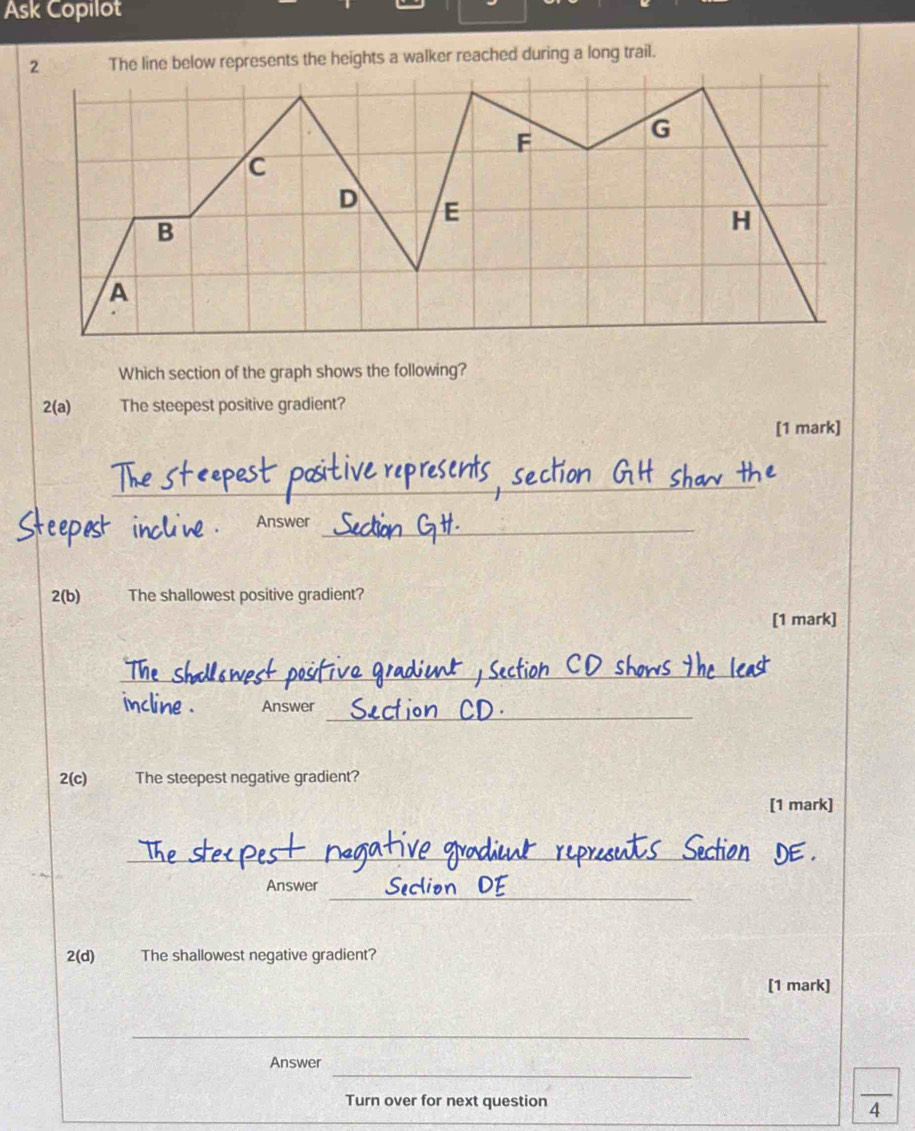 Ask Copilot
2 The line below represents the heights a walker reached during a long trail.
F G
C
D E
B H
A
Which section of the graph shows the following?
2(a) The steepest positive gradient?
[1 mark]
The steepest positive represents, section GH show the
steepest incline. Answer Section GH.
2(b) The shallowest positive gradient?
[1 mark]
The shallowest positive gradient, section CD shows the least
incline. Answer Section CD.
2(c) The steepest negative gradient?
[1 mark]
The steepest negative gradient represents Section DE.
Answer Section DE
2(d) The shallowest negative gradient?
[1 mark]
Answer
Turn over for next question
4